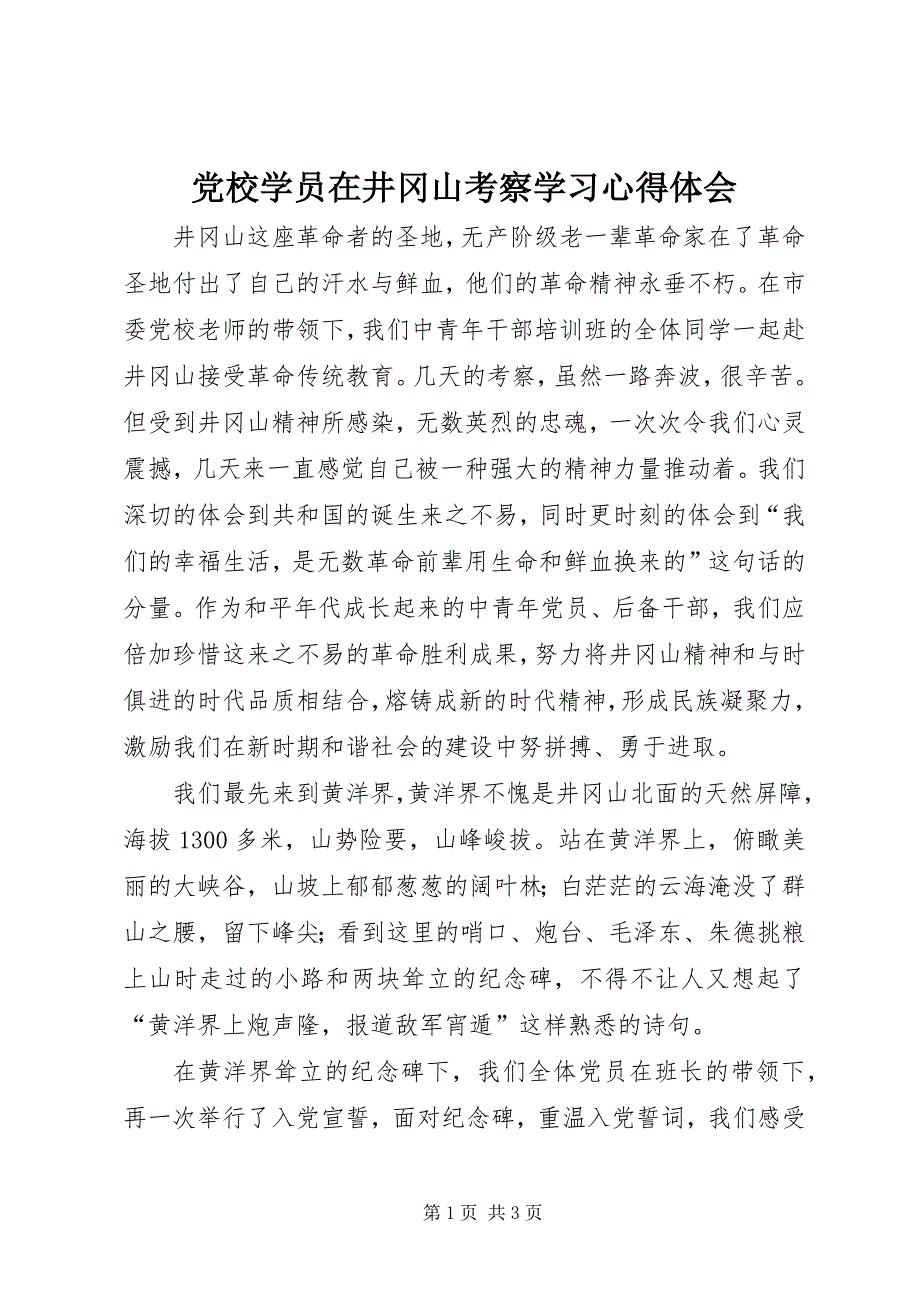 党校学员在井冈山考察学习心得体会
井冈山这座革命者的圣地，无产阶级老一辈革命家在了革命
圣地付出了自己的汗水与鲜血，他们的革命精神永垂不朽。在市
委党校老师的带领下，我们中青年干部培训班的全体同学一起赴
井冈山接受革命传统教育。几天的考察，虽然一路奔波，很辛苦。
但受到井冈山精神所感染，无数英烈的忠魂，一次次令我们心灵
震撼，几天来一直感觉自己被一种强大的精神力量推动着。我们
深切的体会到共和国的诞生来之不易，同时更时刻的体会到“我
们的幸福生活，是无数革命前辈用生命和鲜血换来的”这句话的
分量。作为和平年代成长起来的中青年党员、后备干部，我们应
倍加珍惜这来之不易的革命胜利成果，努力将井冈山精神和与时
俱进的时代品质相结合，熔铸成新的时代精神，形成民族凝聚力，
激励我们在新时期和谐社会的建设中努拼搏、勇于进取。
我们最先来到黄洋界，黄洋界不愧是井冈山北面的天然屏障，
海拔 1300 多米，山势险要，山峰峻拔。站在黄洋界上，俯瞰美
丽的大峡谷，山坡上郁郁葱葱的阔叶林；白茫茫的云海淹没了群
山之腰，留下峰尖；看到这里的哨口、炮台、毛泽东、朱德挑粮
上山时走过的小路和两块耸立的纪念碑，不得不让人又想起了
“黄洋界上炮声隆，报道敌军宵遁”这样熟悉的诗句。
在黄洋界耸立的纪念碑下，我们全体党员在班长的带领下，
再一次举行了入党宣誓，面对纪念碑，重温入党誓词，我们感受
第 1 页 共 3 页